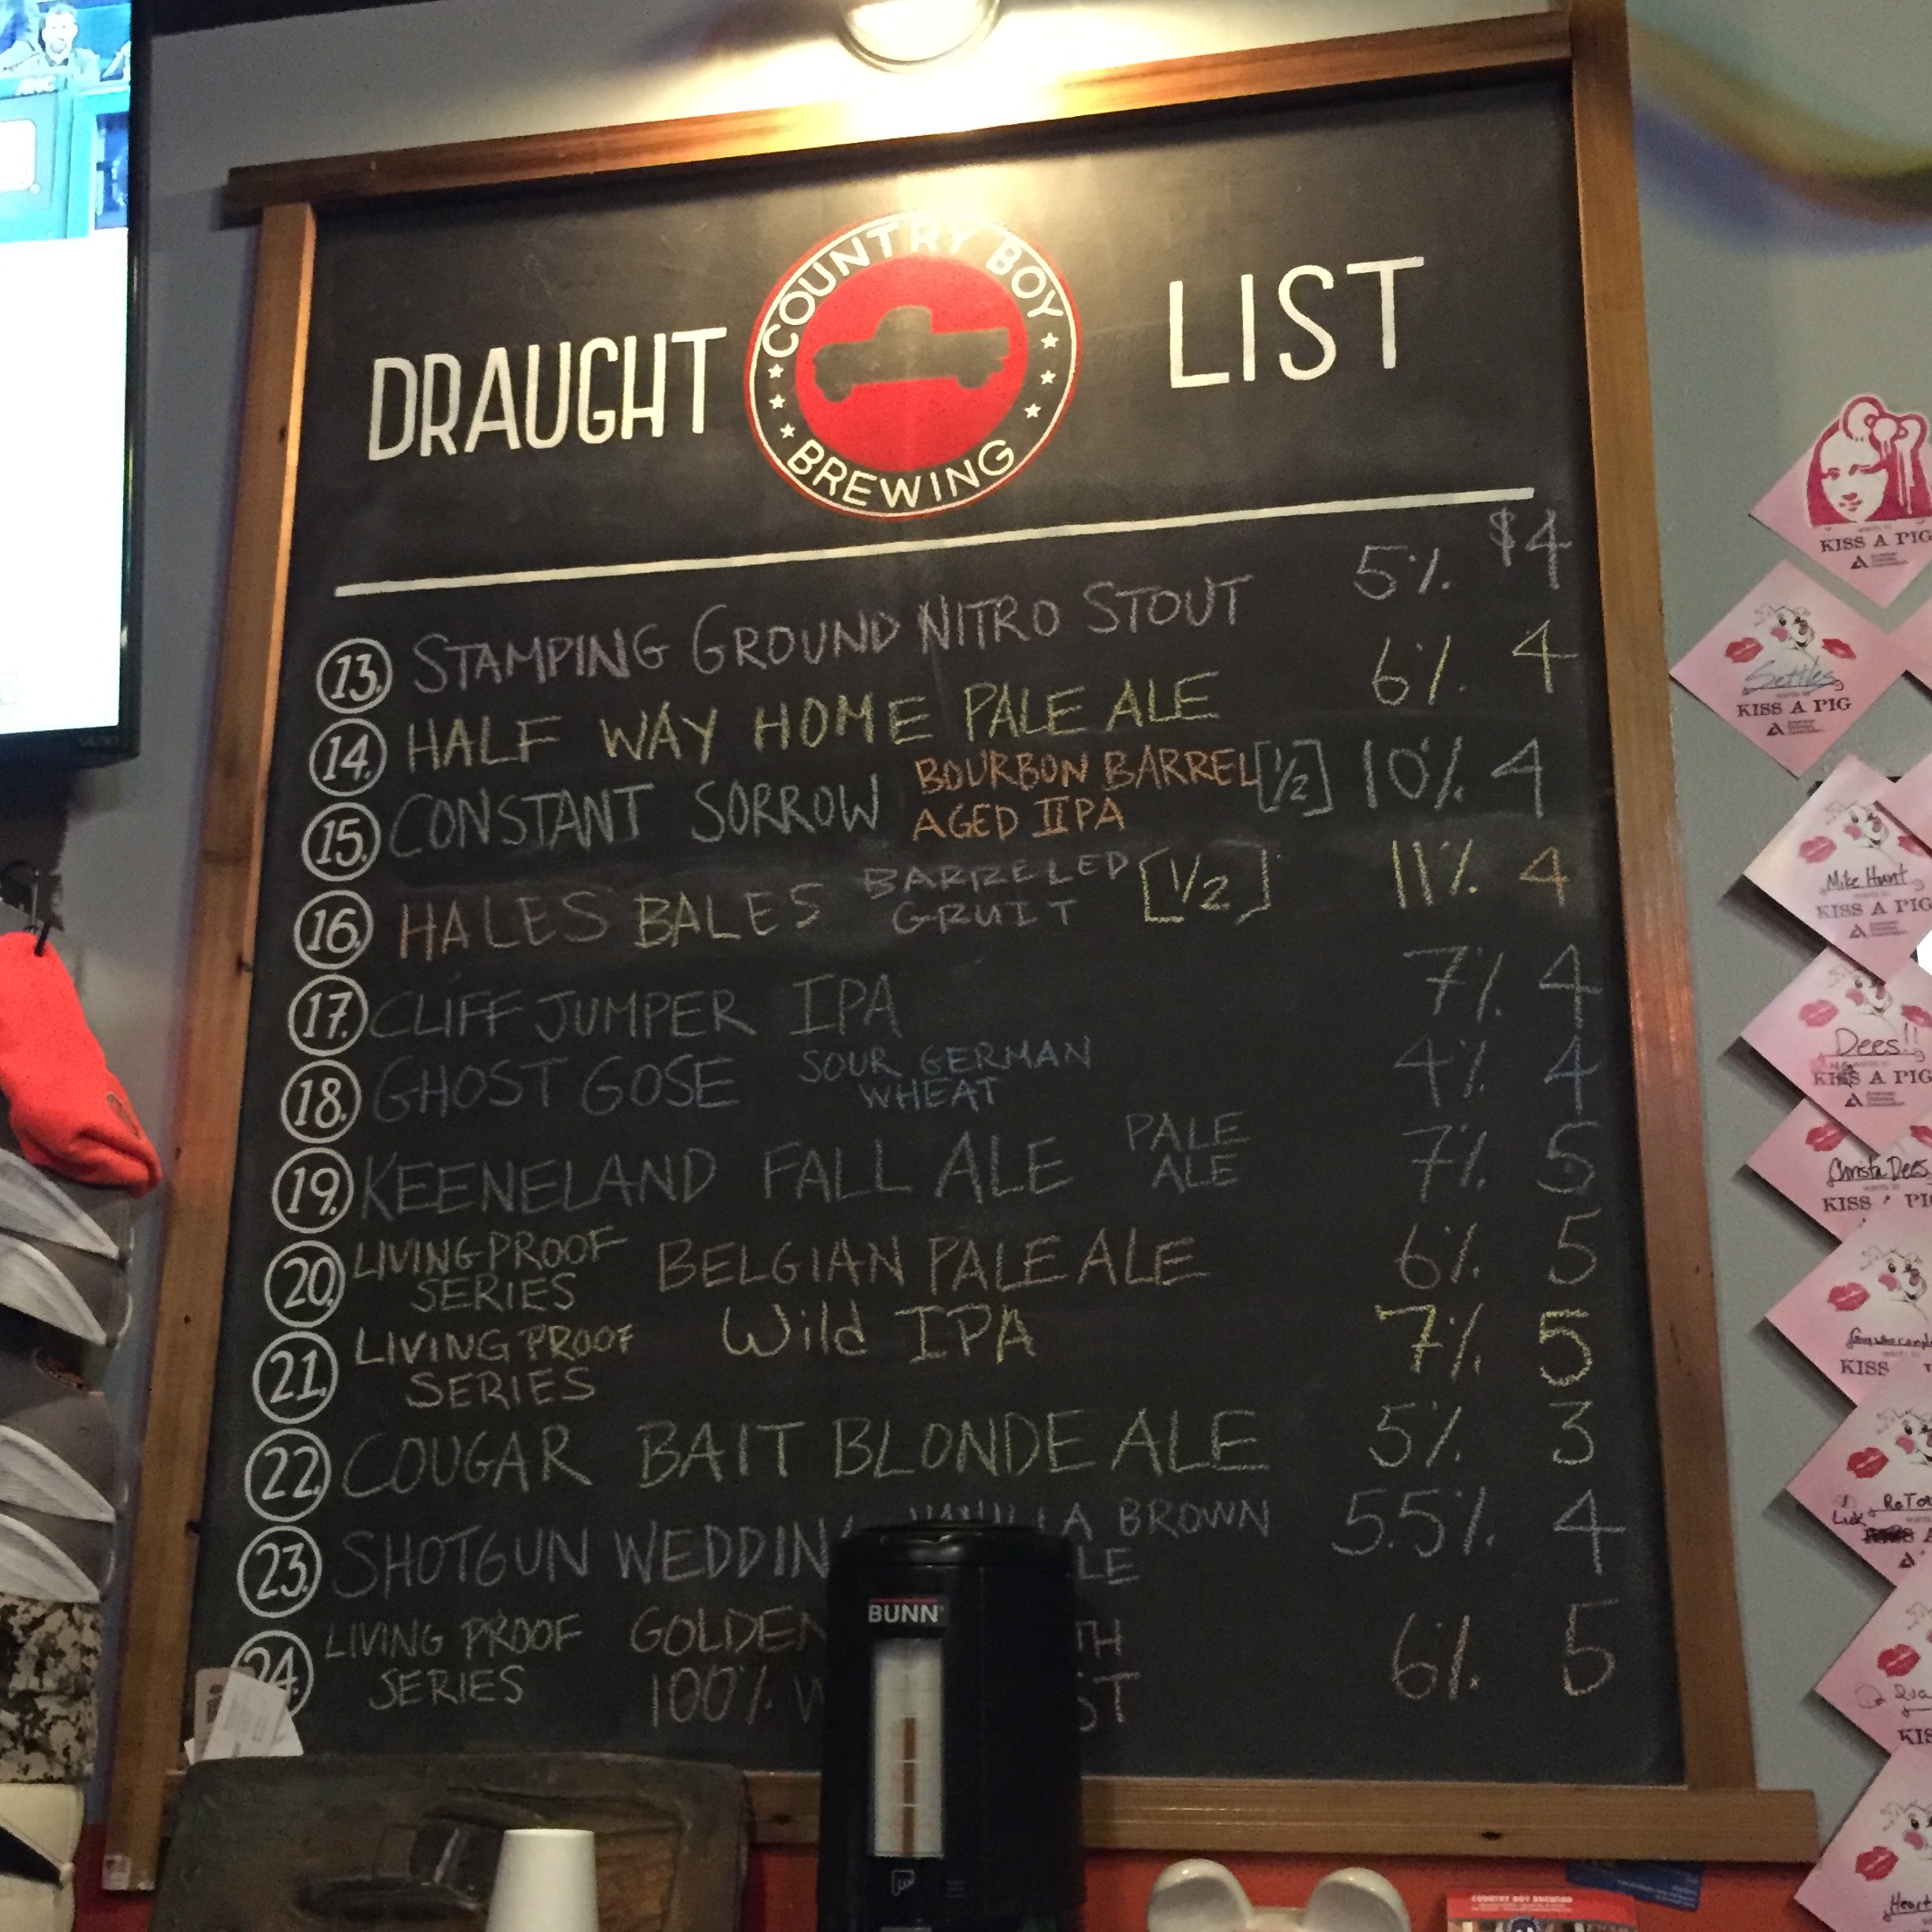 DRAUGHT
COUNTRY BOY
BREWING
LIST
13. STAMPING GROUND NITRO STOUT 5% $4
14. HALF WAY HOME PALE ALE 6% 4
15. CONSTANT SORROW BOURBON BARREL [1/2] 10% 4
AGED IIPA
16. HALES BALES BARRELED [1/2] 11% 4
GRUIT
17. CLIFF JUMPER IPA 7% 4
18. GHOST GOSE SOUR GERMAN 4% 4
WHEAT
19. KEENELAND FALL ALE PALE 7% 5
ALE
20. LIVING PROOF BELGIAN PALE ALE 6% 5
SERIES
21. LIVING PROOF Wild IPA 7% 5
SERIES
22. COUGAR BAIT BLONDE ALE 5% 3
23. SHOTGUN BROWN 5.5% 4
24. LIVING PROOF GOLDEN 6% 5
SERIES 100%
BUNN
KISS A PIG
Settles
wants to
KISS A PIG
Mike Hunt
wants to
KISS A PIG
Dees!!
KISS A PIG
Christa Dees
wants to
KISS
KISS
COUNTRY BOY BREWING